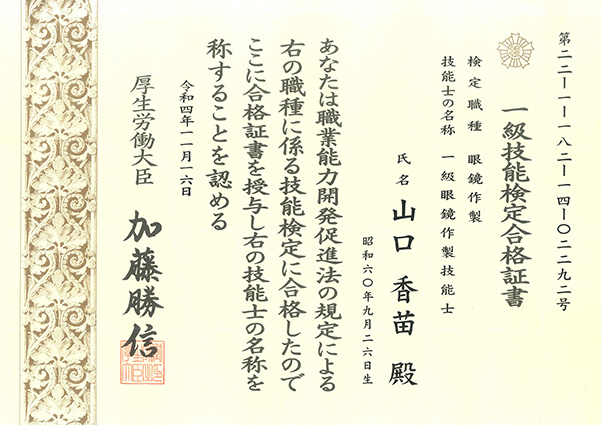 第二二―一―一八二―一四―〇二二九二号
一級技能検定合格証書
検定職種 眼鏡作製
技能士の名称 一級眼鏡作製技能士
氏名 山口 香苗 殿
昭和六〇年九月二六日生
あなたは職業能力開発促進法の規定による
右の職種に係る技能検定に合格したので
ここに合格証書を授与し右の技能士の名称を
称することを認める
令和四年一一月一六日
厚生労働大臣 加藤勝信